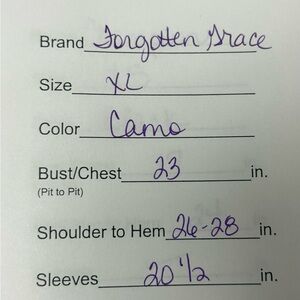 Brand Forgotten Grace
Size XL
Color Camo
Bust/Chest 23 in.
(Pit to Pit)
Shoulder to Hem 26-28 in.
Sleeves 20 1/2 in.